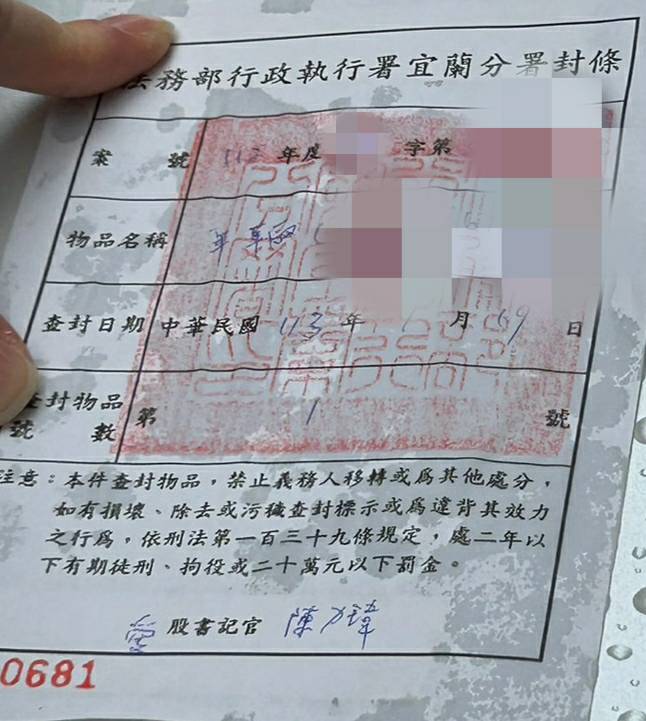 法務部行政執行署宜蘭分署封條
案號 112 年度 字第
物品名稱
查封日期 中華民國 113 年 月 19 日
查封物品
號數 第 1 號
注意：本件查封物品，禁止義務人移轉或為其他處分，
如有損壞、除去或污穢查封標示或為違背其效力
之行為，依刑法第一百三十九條規定，處二年以
下有期徒刑、拘役或二十萬元以下罰金。
愛 股書記官 陳力瑋
0681